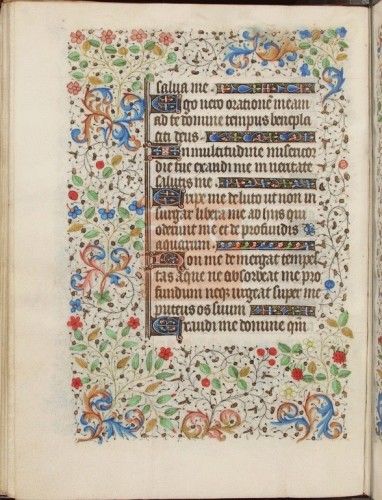 salua me.
Ego vero orationē meam
ad te domine tempus benepla
citi deus.
In multitudine misericor
die tue exaudi me in veritate
salutis me.
Eripe me de luto ut non in
fingar libera me ab hiis qui
oderunt me et de profundis
aquarum.
Non me demergat tempes
tas aque neq absorbeat me pro
fundum neq urgeat super me
puteus os suum.
Exaudi me domine qm̄